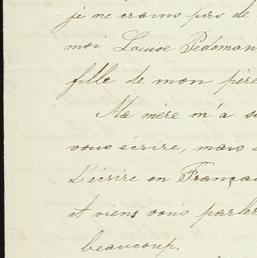 je ne crains pas de
moi Louise Pedemon
fille de mon père
Ma mère m'a
vous écrire, mais
d'écrire en França
et viens vous parler
beaucoup.